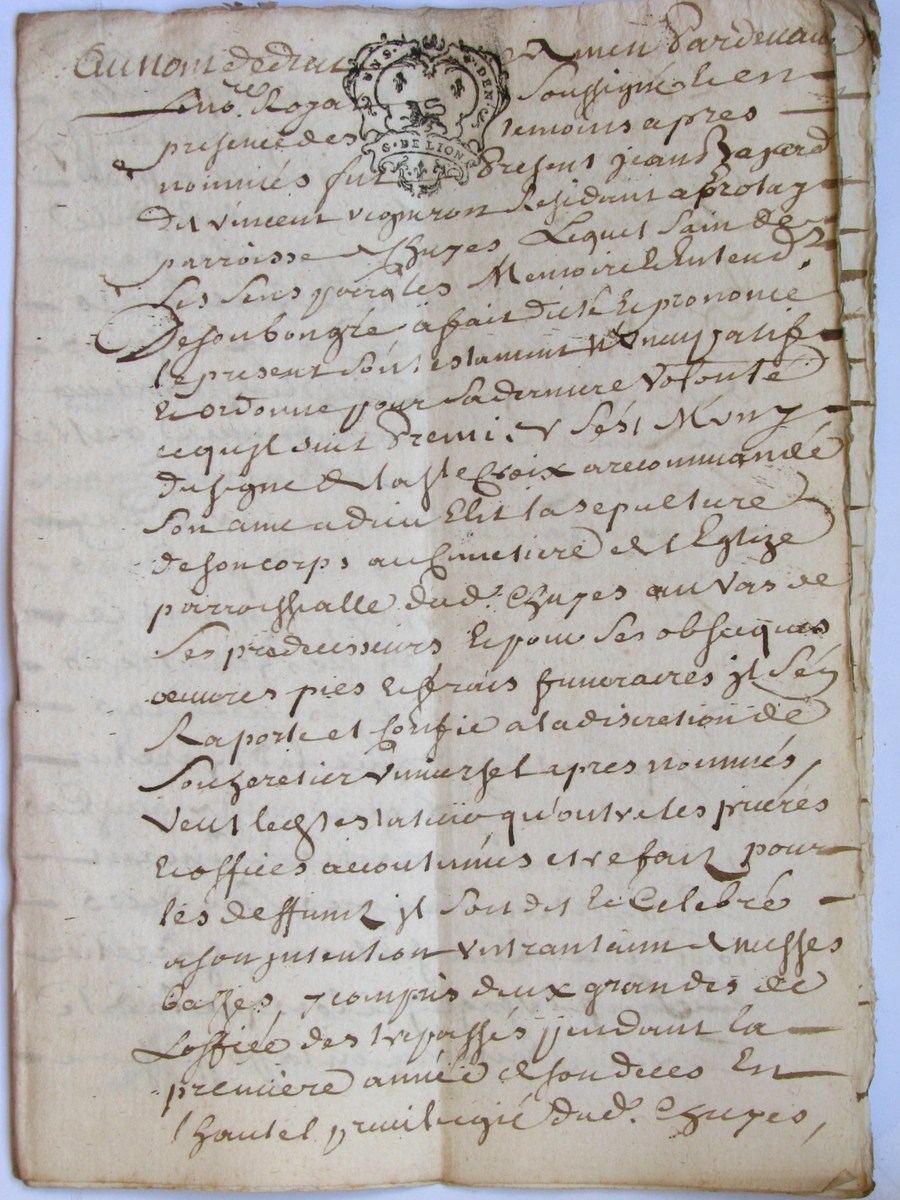 Au nom de dieu Amen Pardevant
Le no.re Royal soussigné Et en
presence des temoins apres
nommés fut Present jean
Dit vincent vigneron Residant a
parroisse de Chuyes Lequel sain de
ses sens parolles Memoire Et Entend.t
De son bon gré a fait dicté Et prononcé
le present son testament nuncupatif
Et ordonne pour sa derniere Volonté
ce quy suit Premier s'est Muny
du signe de la ste Croix a recommandé
son ame a dieu Elit la sepulture
de son corps au Cimetiere de l'Eglize
parroissialle dud. Chuyes au Vas de
ses predecesseurs Et pour ses obseques
œuvres pies Et frais funeraires jl s'en
Raporte et confie a la discretion de
son heretier Universel apres nommés,
Veut led testateur qu'outre les prieres
Et offices acoutumés etre fait pour
les deffunt jl soit dit Et Celebré
a son jntention un trantain de messes
basses, y compris deux grandes de
L'office des trepassés pendant la
premiere année de son deces En
l'hautel privilegié dud. Chuyes,
G. DE LION